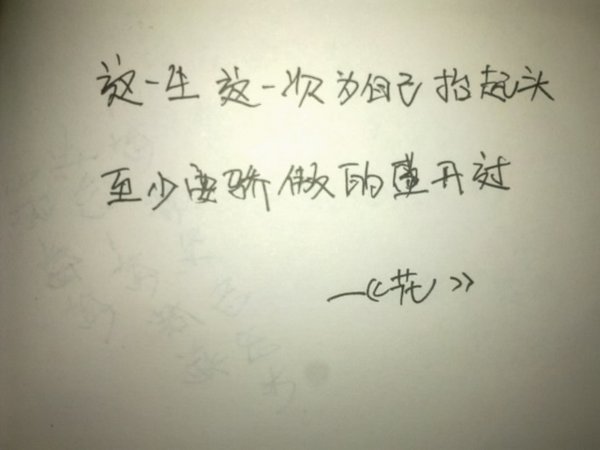 这一生 这一次为自己抬起头
至少要骄傲的盛开过
—《花》